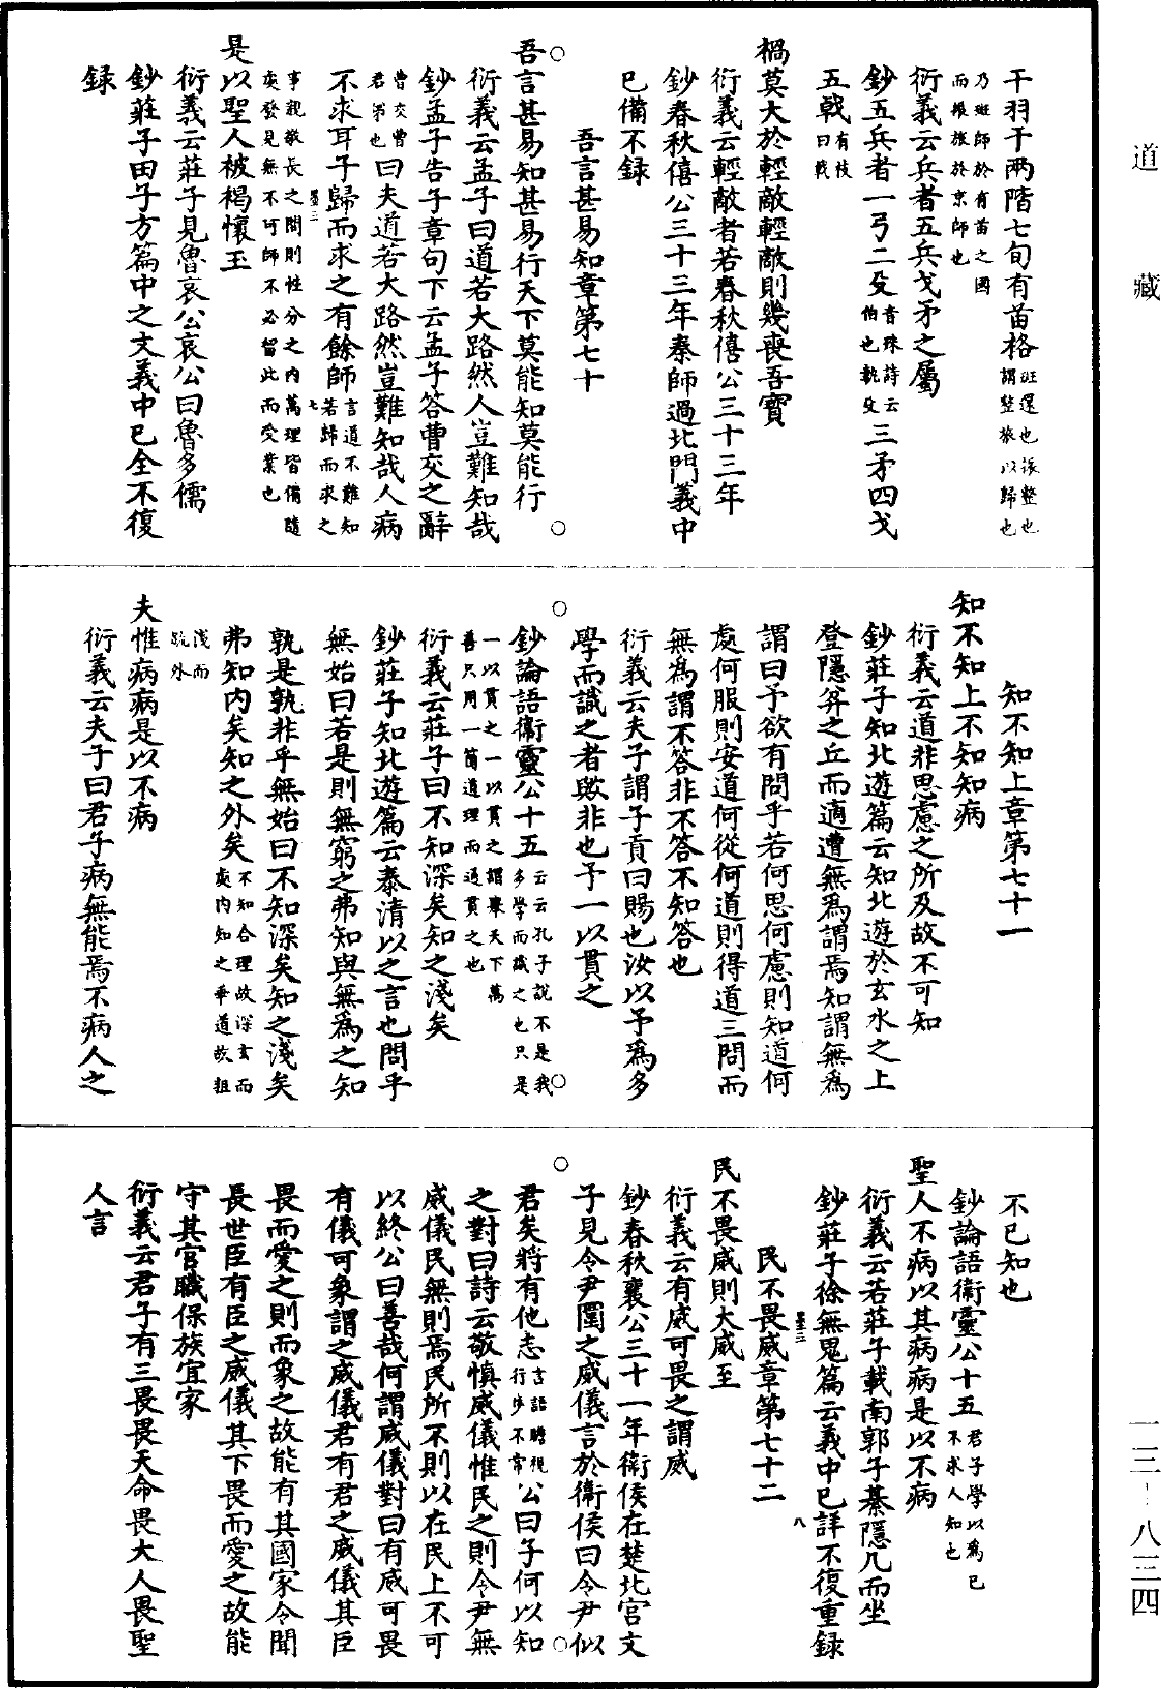 干羽于兩階七旬有苗格班還也振整也謂整旅以歸也
乃班師於有苗之國而振旅於京師也
衍義云兵者五兵戈矛之屬
鈔五兵者一弓二殳音殊詩云伯也執殳三矛四戈
五戟有枝曰戟
禍莫大於輕敵輕敵則幾喪吾寶
衍義云輕敵者若春秋僖公三十三年
鈔春秋僖公三十三年秦師過北門義中
已備不録
吾言甚易知章第七十
吾言甚易知甚易行天下莫能知莫能行
衍義云孟子曰道若大路然人豈難知哉
鈔孟子告子章句下云孟子答曹交之辭
曹交曹君弟也曰夫道若大路然豈難知哉人病
不求耳子歸而求之有餘師言道不難知若歸而求之
墨三
七
事親敬長之間則性分之内萬理皆備隨處發見無不可師不必留此而受業也
是以聖人被褐懷玉
衍義云莊子見魯哀公哀公曰魯多儒
鈔莊子田子方篇中之文義中已全不復
録
知不知上章第七十一
知不知上不知知病
衍義云道非思慮之所及故不可知
鈔莊子知北遊篇云知北遊於玄水之上
登隱弅之丘而適遭無爲謂焉知謂無爲
謂曰予欲有問乎若何思何慮則知道何
處何服則安道何從何道則得道三問而
無爲謂不答非不答不知答也
衍義云夫子謂子貢曰賜也汝以予爲多
學而識之者歟非也予一以貫之
鈔論語衞靈公十五云云孔子說不是我多學而識之也只是
一以貫之一以貫之謂舉天下萬善只用一箇道理而通貫之也
衍義云莊子曰不知深矣知之淺矣
鈔莊子知北遊篇云泰清以之言也問乎
無始曰若是則無窮之弗知與無爲之知
孰是孰非乎無始曰不知深矣知之淺矣
弗知内矣知之外矣不知合理故深玄而處内知之乖道故粗
淺而疏外
夫惟病病是以不病
衍義云夫子曰君子病無能焉不病人之
不已知也
鈔論語衛靈公十五君子學以爲已不求人知也
聖人不病以其病病是以不病
衍義云若莊子載南郭子綦隱几而坐
鈔莊子徐無鬼篇云義中已詳不復重録
民不畏威章第七十二
墨三
八
民不畏威則大威至
衍義云有威可畏之謂威
鈔春秋襄公三十一年衛侯在楚北宮文
子見令尹圍之威儀言於衛侯曰令尹似
君矣將有他志言語瞻視行步不常公曰子何以知
之對曰詩云敬慎威儀惟民之則令尹無
威儀民無則焉民所不則以在民上不可
以終公曰善哉何謂威儀對曰有威可畏
有儀可象謂之威儀君有君之威儀其臣
畏而愛之則而象之故能有其國家令聞
長世臣有臣之威儀其下畏而愛之故能
守其官職保族宜家
衍義云君子有三畏畏天命畏大人畏聖
人言
道藏
一三-八三四